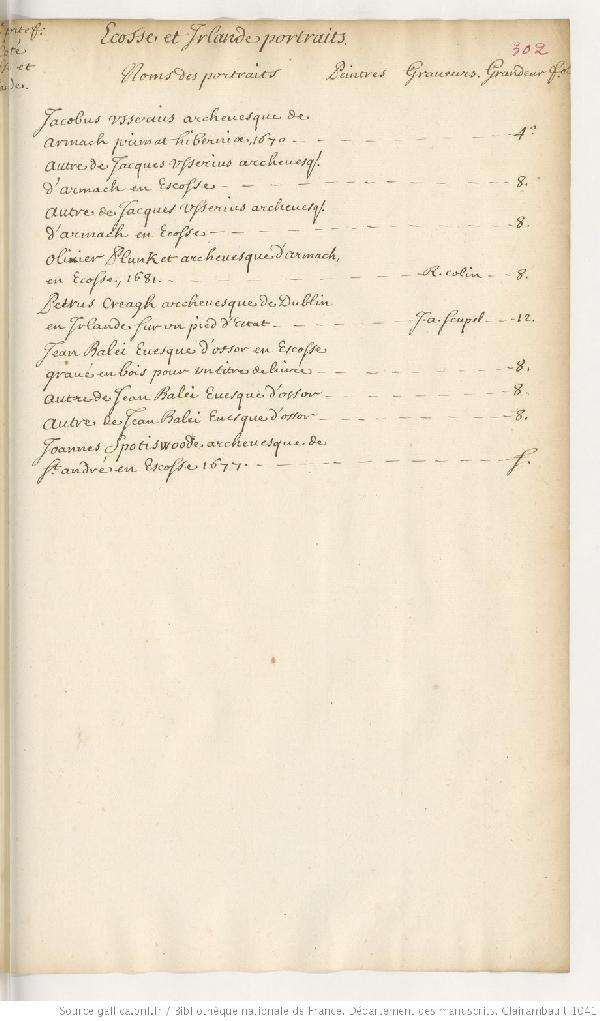 Ecosse et Irlande portraits.
302
Noms des portraits Peintres Graueurs. Grandeur
Jacobus Vsserius archeuesque de
armach primat hiberniæ, 1670 4º
autre de Jacques Vsserius archeuesq.
d'armach en Escosse 8.
autre de Jacques Vsserius archeuesq.
d'armach en Ecosse 8.
Oliuier Plunket archeuesque d'armach,
en Ecosse, 1681. R. colin 8.
Petrus Creagh archeuesque de Dublin
en Irlande sur un pied d'Estat J. a. Seupel 12.
Jean Baléi Euesque d'ossor en Escosse
graué en bois pour un titre de liure 8.
autre de Jean Baléi Euesque d'ossor 8.
autre de Jean Baléi Euesque d'ossor 8.
Joannes Spotiswoode archeuesque de
St. andré en Escosse 1677. f.
Source gallica.bnf.fr / Bibliothèque nationale de France. Département des manuscrits. Clairambault 1041